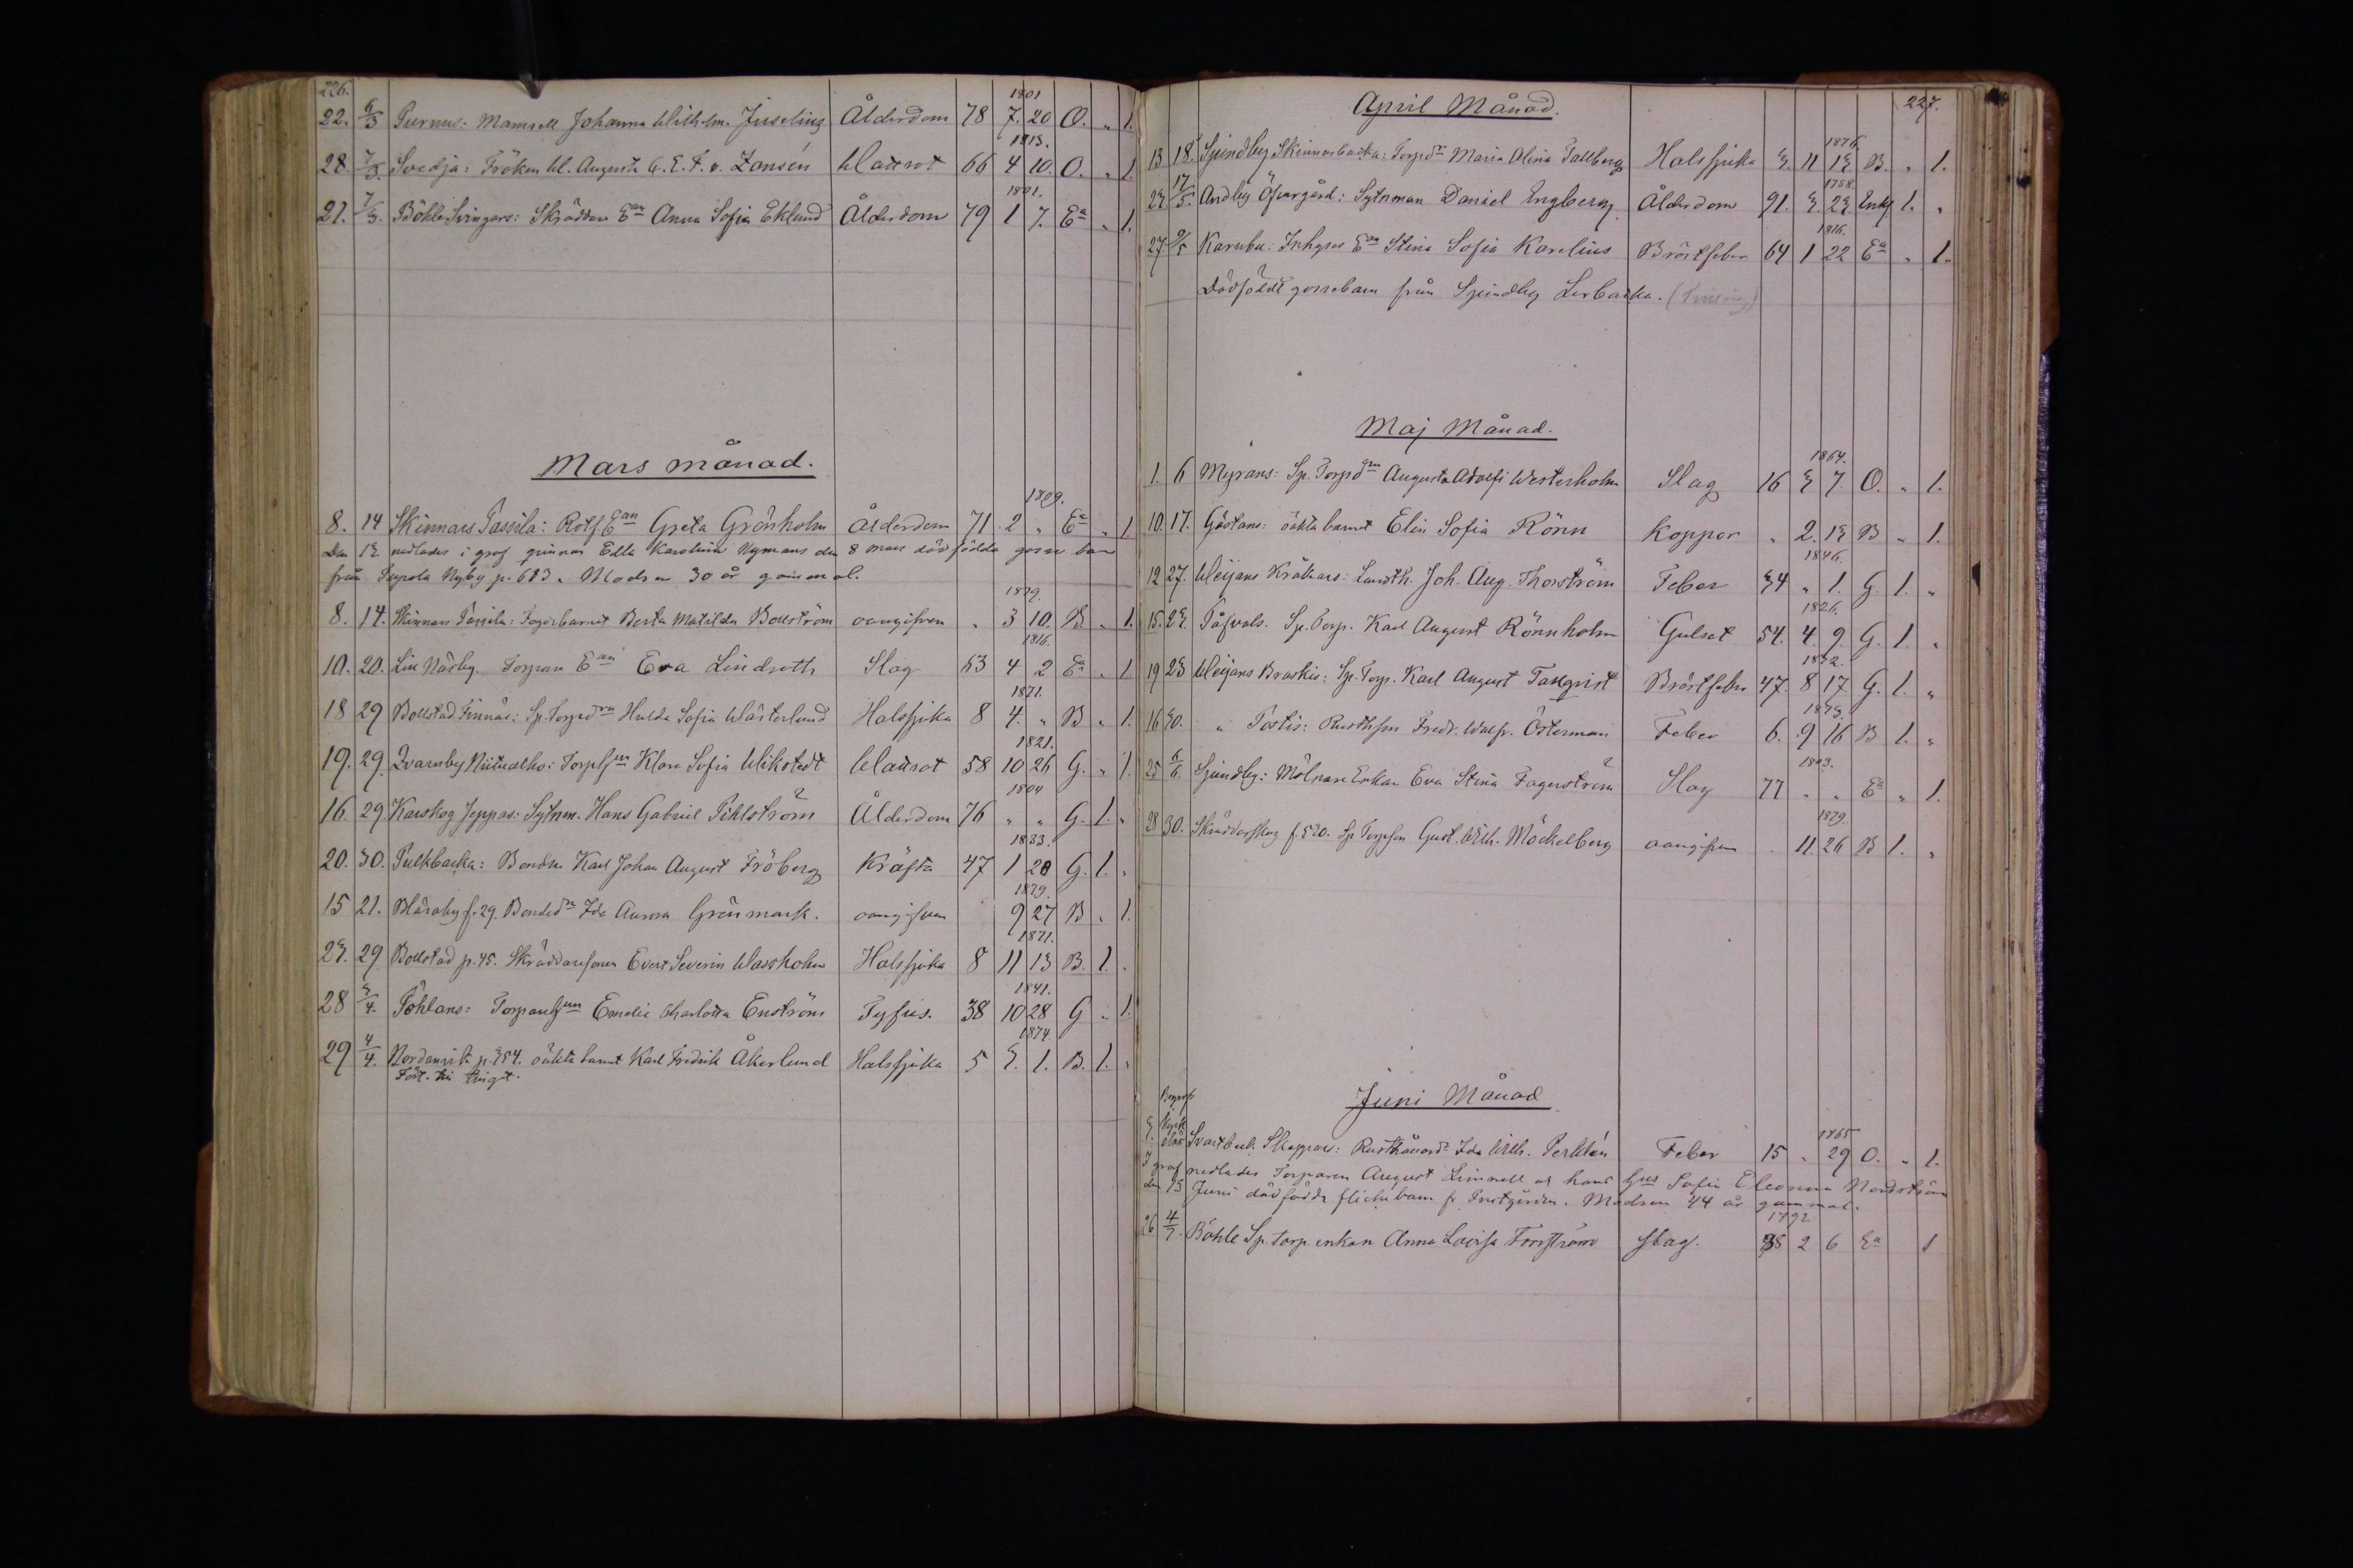 226.
1801
22. 6/3 Purnus: Mamsell Johanna Wilhelm. Juselius Ålderdom 78 7. 20 O. „ 1.
1813.
28. 7/3. Svedja: Fröken W. Augusta C. E. F. v. Zansén Wattsot 66 4 10. O. „ 1.
1801.
21. 7/3. Böhle Svingars: Skrädden Ean Anna Sofia Eklund Ålderdom 79 1 7. Ea „ 1.
Mars månad.
1809.
8. 14 Skinnars Tassila: Rotf. Ean Greta Grönholm Ålderdom 71 2 „ Ea „ 1
Den 12 nedlades i graf qvinnan Edla Karolina Nymans den 8 mars död födda gosse barn
från Supola Nyby p. 683. Modren 30 år gammal.
1879.
8. 14. Skinnars Tassila: Berta Matilda Bollström oangifven „ 3 10. B. „ 1.
1816.
10. 20. Lill Näsby. Torpare Ean Eva Lindroth Slag 63 4 2 Ea „ 1
1871.
18 29 Bollstad Finnäs: Sp. Torpdrn Hulda Sofia Wästerlund Halssjuka 8 4. „ B „ 1.
1821.
19. 29. Qvarnby Niitualho: Klara Sofia Wikstedt Wattsot 58 10 26 G. „ 1.
1804
16. 29. Karskog Jeppas: Sytnm. Hans Gabriel Pihlström Ålderdom 76 „ „ G. 1. „
1833.
20. 30. Pullbacka: Bonden Karl Johan August Fröberg Kräfta 47 1 20 G. 1. „
1879.
15 21. Blåsaby f. 29. Bondedr Ida Aurora Grönmark. oangifven 9 27 B „ 1.
1871.
23. 29. Bollstad p. 45. Skräddaresonen Evert Severin Wassholm Halssjuka 8 11 13 B. 1. „
1841.
28 3/4. Pöhlans: Emelie Charlotta Enström Tyfus. 38 10 28 G „ 1.
1874.
29 4/4. Nordanvik p. 354. oäkta barnet Karl Fredrik Åkerlund Halssjuka 5 3. 1. B. 1. „
227.
April Månad.
1876.
13 18. Spindby Skinnarbacka: Torpdr Maria Olina Tallberg Halssjuka 3. 11 13. B. „ 1.
1788.
23 17/5. Andby Öfvergård: Sytnman Daniel Engberg Ålderdom 91. 3. 23. Enkl 1. „
1816.
27 9/5 Karuby: Inhyses Ean Stina Sofia Karelius Bröstfeber 64 1 22 Ea „ 1.
Dödfödt gossebarn från Spindby Lerbacka. (Tvilling)
Maj Månad.
1864.
1. 6 Myrans: Sp. Torpdrn Augusta Adolfi Westerholm Slag 16 3 7. O. „ 1.
10. 17. Göstans: oäkta barnet Elin Sofia Rönn Koppor „ 2. 13 B „ 1.
1846.
12 27. Weijans Kråkars: Landth. Joh. Aug. Thorström Feber 34 „ 1. G. 1. „
1826.
15. 23. Påfvals. Sp. Torp. Karl August Rönnholm Gulsot 54. 4. 9. G. 1. „
1832.
19 23 Weijans Braskis: Sp. Torp. Karl August Tallqvist Bröstfeber 47. 8 17 G. 1. „
1873.
16 30. „ Tostis: Fredr. Walfr. Österman Feber 6. 9 16 B 1. „
1803.
25 6/6. Spindby: Mölnare Enkan Eva Stina Fagerström Slag 77 „ „ Ea „ 1.
1879.
28 30. Skräddarskog f. 520. Sp Torpson Gust. Wilh. Möckelberg oangifven „ 11. 26 B 1. „
Juni Månad
1865
3. Svartbäck Skeppars: Ida Wilh. Perklén Feber 15 „ 29 O. „ 1.
I graf nedlades Torparen August Linnell och hans hus Sofia Eleonora Nordström
den 13 Juni dödfödda flickebarn fr. Prostgården. Modren 44 år gammal.
1792
26 4/7. Böhle Sp. torp. enkan Anna Lovisa Forsström slag. 88 2 6 Ea 1